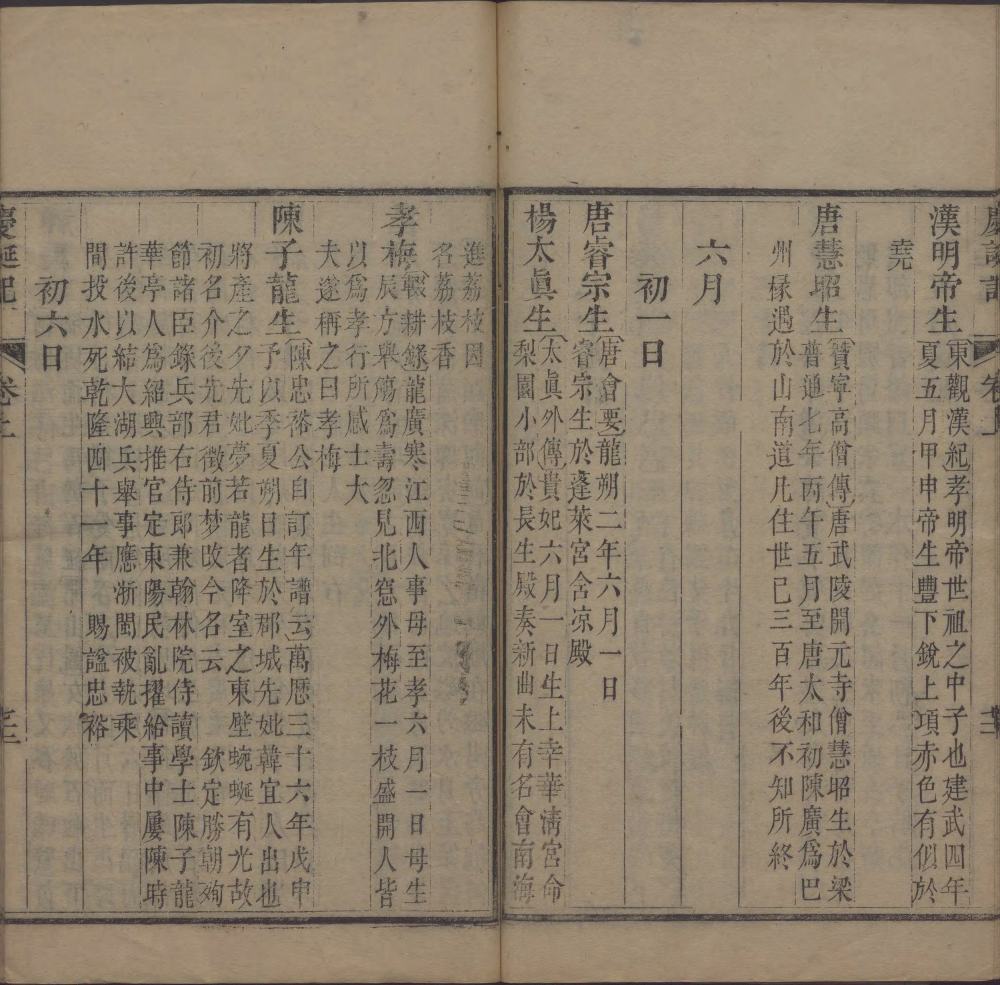 漢明帝生
東觀漢紀孝明帝世祖之中子也建武四年
夏五月甲申帝生豐下銳上項赤色有似於
堯
唐慧昭生
贊寧高僧傳唐武陵開元寺僧慧昭生於梁
普通七年丙午五月至唐太和初陳廣爲巴
州椽遇於山南道凡住世已三百年後不知所終
六月
初一日
唐睿宗生
唐會要龍朔二年六月一日
睿宗生於蓬萊宮含凉殿
楊太眞生
太眞外傳貴妃六月一日生上幸華淸宮命
梨園小部於長生殿奏新曲未有名會南海
進荔枝因
名荔枝香
孝梅
輟耕錄龍廣寒江西人事母至孝六月一日母生
辰方舉觴爲壽忽見北窻外梅花一枝盛開人皆
以爲孝行所感士大
夫遂稱之曰孝梅
陳子龍生
陳忠裕公自訂年譜云萬厯三十六年戊申
予以季夏朔日生於郡城先妣韓宜人出也
將產之夕先妣夢若龍者降室之東壁蜿蜒有光故
初名介後先君徵前梦改今名云　欽定勝朝殉
節諸臣錄兵部右侍郎兼翰林院侍讀學士陳子龍
華亭人爲紹興推官定東陽民亂擢給事中屢陳時
許後以結大湖兵舉事應浙閩被執乘
間投水死乾隆四十一年　賜諡忠裕
初六日
慶誕記